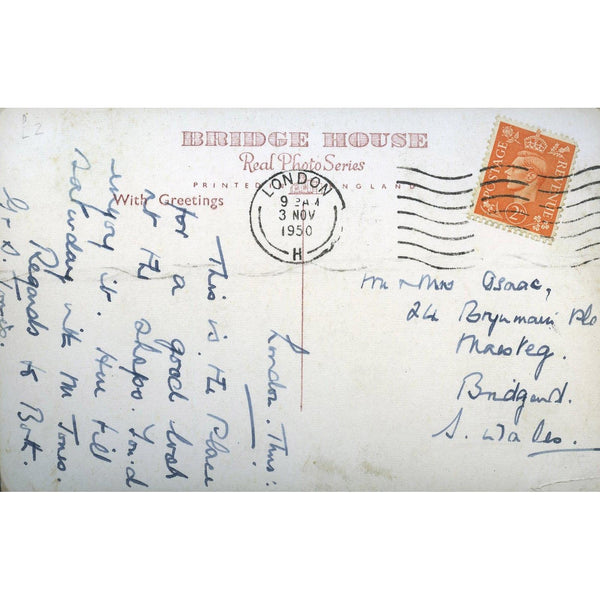 £2
BRIDGE HOUSE
Real Photo Series
PRINTED ENGLAND
With Greetings
LONDON
9 AM
3 NOV
1950
H
POSTAGE
REVENUE
2
London. This:
This is the Place
for a good look
at the shops. You'd
enjoy it. Here till
Saturday with Mr Jones.
Regards to Both.
Mr & Mrs Isaac,
24 Brynmawr Plc
Maesteg.
Bridgend.
S. Wales.